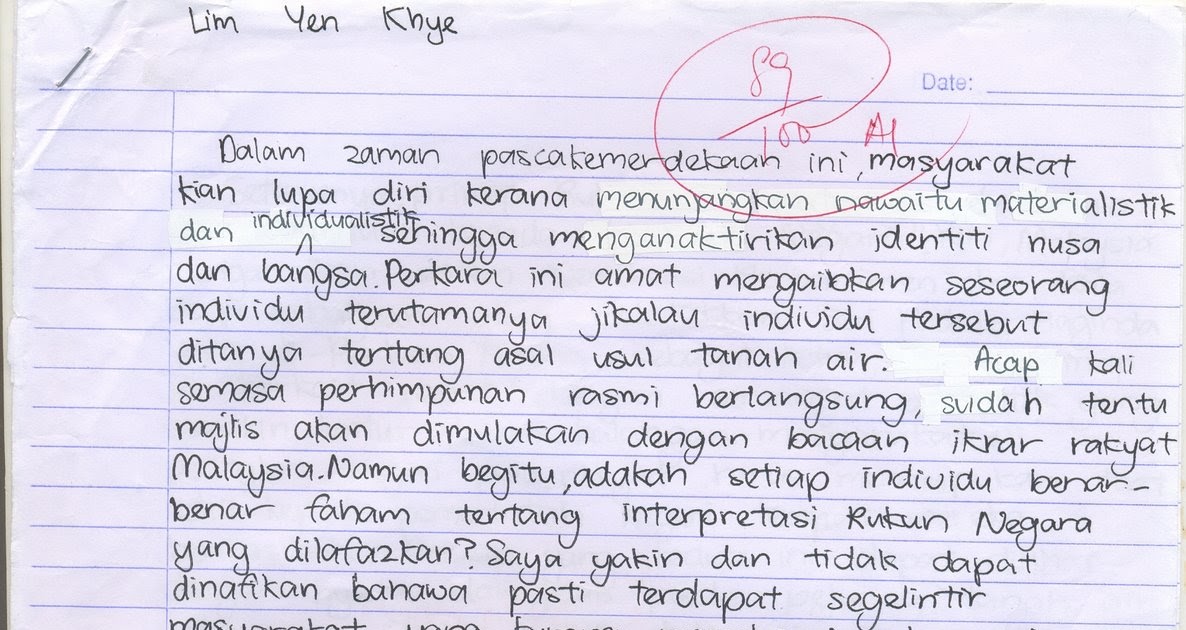 Lim Yen Khye
89
100 A1
Date:
Dalam zaman pascakemerdekaan ini, masyarakat
kian lupa diri kerana menunjangkan nawaitu materialistik
dan individualistik sehingga menganaktirikan identiti nusa
dan bangsa. Perkara ini amat mengaibkan seseorang
individu terutamanya jikalau individu tersebut
ditanya tentang asal usul tanah air. Acap kali
semasa perhimpunan rasmi berlangsung, sudah tentu
majlis akan dimulakan dengan bacaan ikrar rakyat
Malaysia. Namun begitu, adakah setiap individu benar-
benar faham tentang interpretasi Rukun Negara
yang dilafazkan? Saya yakin dan tidak dapat
dinafikan bahawa pasti terdapat segelintir
masyarakat yang